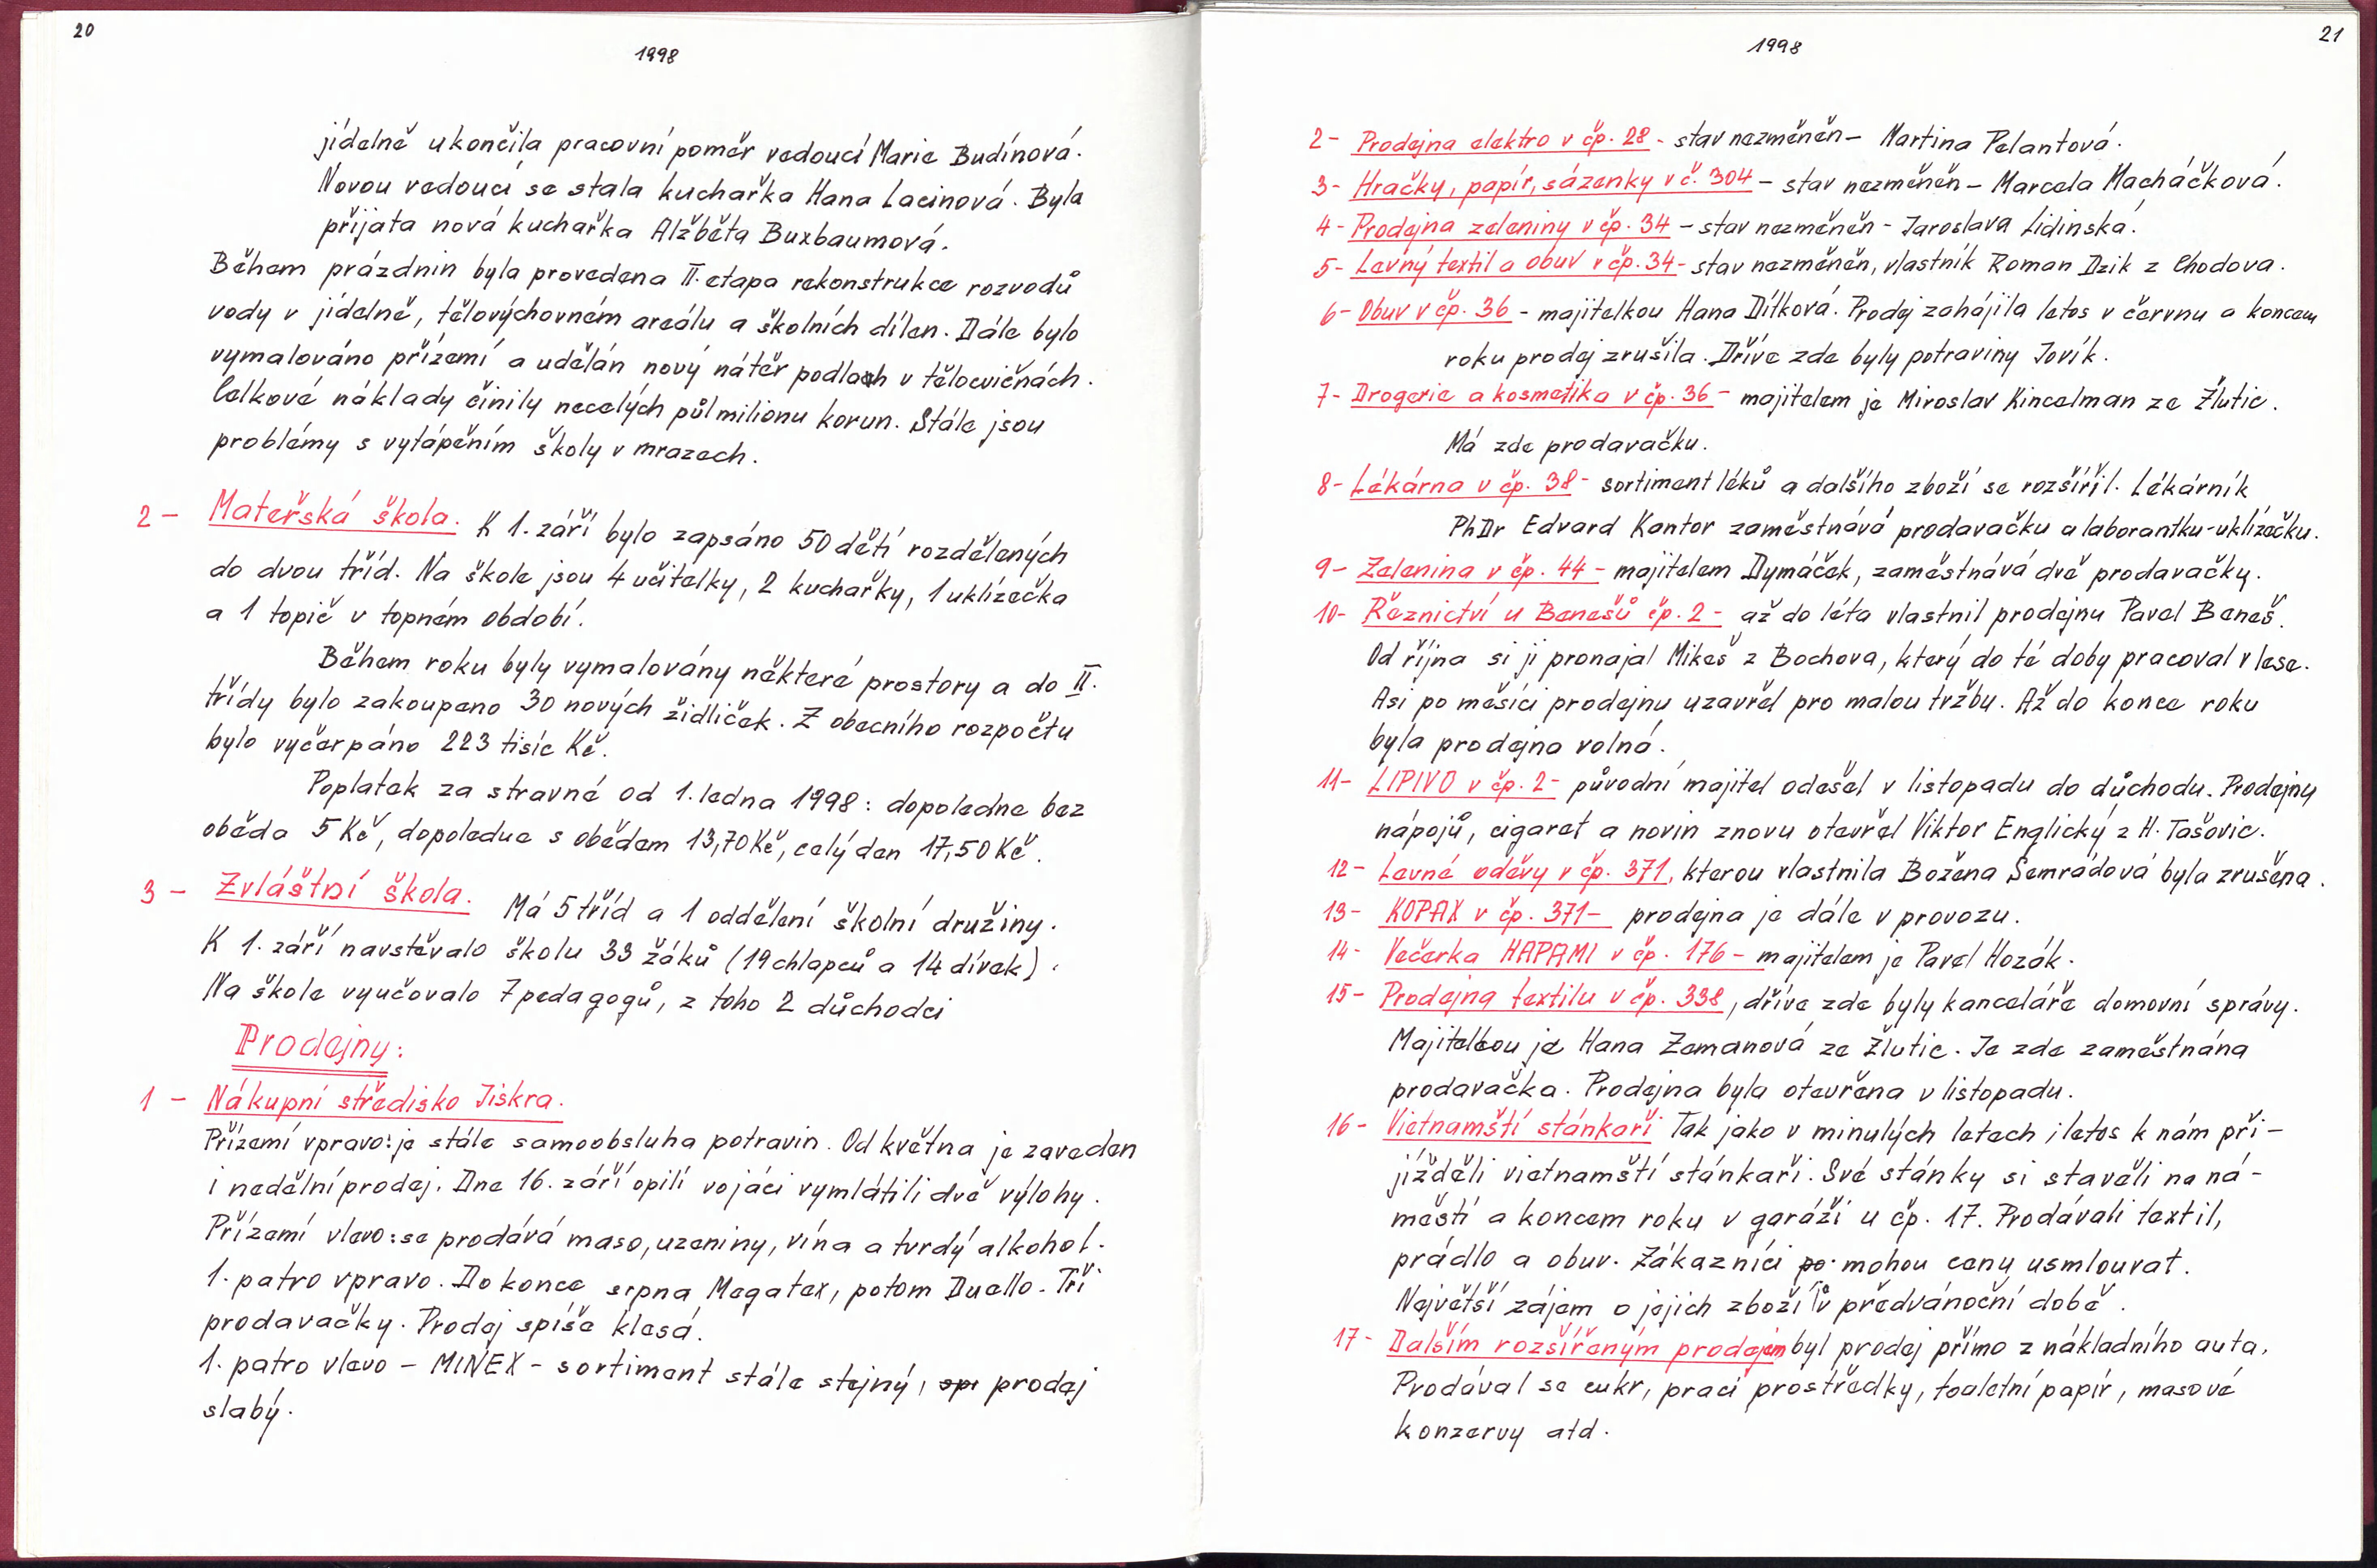 20
1998
jídelně ukončila pracovní poměr vedoucí Marie Budínová.
Novou vedoucí se stala kuchařka Hana Lacinová. Byla
přijata nová kuchařka Alžběta Buxbaumová.
Během prázdnin byla provedena II. etapa rekonstrukce rozvodů
vody v jídelně, tělovýchovném areálu a školních dílen. Dále bylo
vymalováno přízemí a udělán nový nátěr podlach v tělocvičnách.
Celkové náklady činily necelých půl milionu korun. Stále jsou
problémy s vytápěním školy v mrazech.
2 - Mateřská škola. K 1. září bylo zapsáno 50 dětí rozdělených
do dvou tříd. Na škole jsou 4 učitelky, 2 kuchařky, 1 uklízečka
a 1 topič v topném období.
Během roku byly vymalovány některé prostory a do II.
třídy bylo zakoupeno 30 nových židliček. Z obecního rozpočtu
bylo vyčerpáno 223 tisíc Kč.
Poplatek za stravné od 1. ledna 1998: dopoledne bez
oběda 5 Kč, dopoledne s obědem 13,70 Kč, celý den 17,50 Kč.
3 - Zvláštní škola. Má 5 tříd a 1 oddělení školní družiny.
K 1. září navštěvalo školu 33 žáků (19 chlapců a 14 dívek).
Na škole vyučovalo 7 pedagogů, z toho 2 důchodci
Prodejny:
1 - Nákupní středisko Jiskra.
Přízemí vpravo: je stále samoobsluha potravin. Od května je zaveden
i nedělní prodej. Dne 16. září opilí vojáci vymlátili dvě výlohy.
Přízemí vlevo: se prodává maso, uzeniny, vína a tvrdý alkohol.
1. patro vpravo. Do konce srpna Megatex, potom Duello. Tři
prodavačky. Prodej spíše klesá.
1. patro vlevo - MINEX - sortiment stále stejný, spi prodej
slabý.
1998
21
2- Prodejna elektro v čp. 28 - stav nezměněn - Martina Pelantová.
3- Hračky, papír, sázenky v č. 304 - stav nezměněn - Marcela Macháčková.
4- Prodejna zeleniny v čp. 34 - stav nezměněn - Jaroslava Lidinská.
5- Levný textil a obuv v čp. 34 - stav nezměněn, vlastník Roman Dzik z Chodova.
6- Obuv v čp. 36 - majitelkou Hana Dítková. Prodej zahájila letos v červnu a koncem
roku prodej zrušila. Dříve zde byly potraviny Jovík.
7- Drogerie a kosmetika v čp. 36 - majitelem je Miroslav Kincelman ze Žlutic.
Má zde prodavačku.
8- Lékárna v čp. 38 - sortiment léků a dalšího zboží se rozšířil. Lékárník
PhDr Edvard Kantor zaměstnává prodavačku a laborantku-uklízečku.
9- Zelenina v čp. 44 - majitelem Dymáček, zaměstnává dvě prodavačky.
10- Řeznictví u Benešů čp. 2 - až do léta vlastnil prodejnu Pavel Beneš.
Od října si ji pronajal Mikeš z Bochova, který do té doby pracoval v lese.
Asi po měsíci prodejnu uzavřel pro malou tržbu. Až do konce roku
byla prodejna volná.
11- LIPIVO v čp. 2 - původní majitel odešel v listopadu do důchodu. Prodejnu
nápojů, cigaret a novin znovu otevřel Viktor Englický z H. Tašovic.
12- Levné oděvy v čp. 371, kterou vlastnila Božena Šemrádová byla zrušena.
13- KOPAX v čp. 371 - prodejna je dále v provozu.
14- Večerka HAPAMI v čp. 176 - majitelem je Pavel Hozák.
15- Prodejna textilu v čp. 338, dříve zde byly kanceláře domovní správy.
Majitelkou je Hana Zemanová ze Žlutic. Je zde zaměstnána
prodavačka. Prodejna byla otevřena v listopadu.
16- Vietnamští stánkaři Tak jako v minulých letech i letos k nám při-
jížděli vietnamští stánkaři. Své stánky si stavěli na ná-
městí a koncem roku v garáži u čp. 17. Prodávali textil,
prádlo a obuv. Zákazníci po mohou ceny usmlouvat.
Největší zájem o jejich zboží v předvánoční době.
17- Dalším rozšířeným prodejem byl prodej přímo z nákladního auta.
Prodával se cukr, prací prostředky, toaletní papír, masové
konzervy atd.